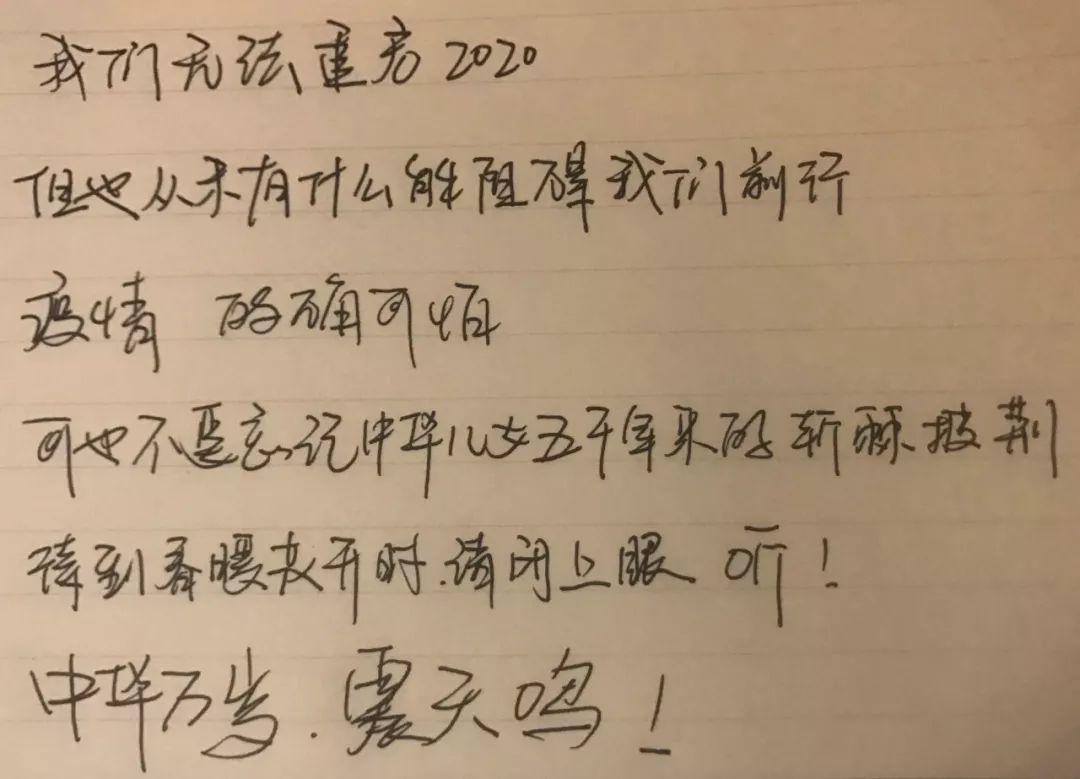 我们无法重启2020
但也从未有什么能阻碍我们前行
疫情 的确可怕
可也不是忘记中华儿女五千年来的斩棘披荆
待到春暖花开时.请闭上眼 听!
中华万岁.震天鸣!